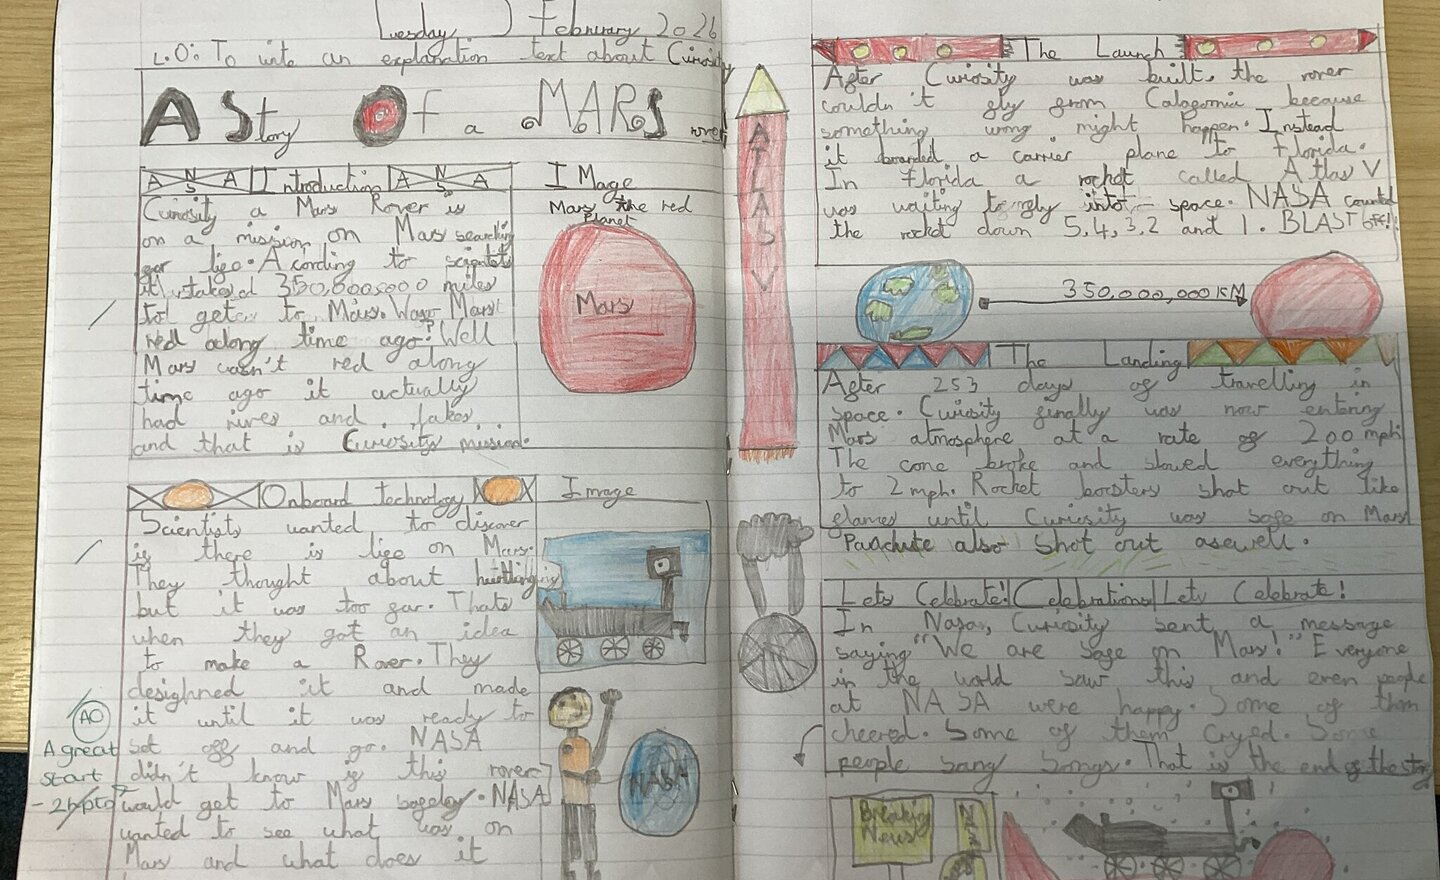 Tuesday 3 February 2026
L.O: To write an explanation text about Curiosity
A Story Of a MARS rover
NASA Introduction NASA
Curiosity a Mars Rover is
on a mission on Mars searching
for life. Acording to scientists
it taked 350,000,000 miles
to get to Mars. Was Mars
red along time ago? Well
Mars wasn't red along
time ago it actually
had rivers and lakes
and that is Curiosity mission.
IMage
Mars the red
Planet
Mars
Onboard technology
Image
Scientists wanted to discover
if there is life on Mars.
They thought about
but it was too far. Thats
when they got an idea
to make a Rover. They
desighned it and made
it until it was ready to
set off and go. NASA
didn't know if this rover
would get to Mars safeley. NASA
wanted to see what was on
Mars and what does it
AO
A great
start
NASA
ATLAS V
The Launch
After Curiosity was built, the rover
couldn't fly from Calafornia because
something wrong might happen. Instead
it boarded a carrier plane to Florida.
In Florida a rocket called Atlas V
was waiting to fly into space. NASA counted
the rocket down 5,4,3,2 and 1. BLAST off!!
350,000,000KM
The Landing
After 253 days of travelling in
space. Curiosity finally was now entering
Mars atmosphere at a rate of 200mph
The cone broke and slowed everything
to 2mph. Rocket boosters shot out like
flames until Curiosity was safe on Mars
Parachute also shot out aswell.
Lets Celebrate! Celebrations Lets Celebrate!
In Nasa, Curiosity sent a message
saying "We are safe on Mars!" Everyone
in the world saw this and even people
at NASA were happy. Some of them
cheered. Some of them cryed. Some
people sang songs. That is the end of the story
Breaking
News